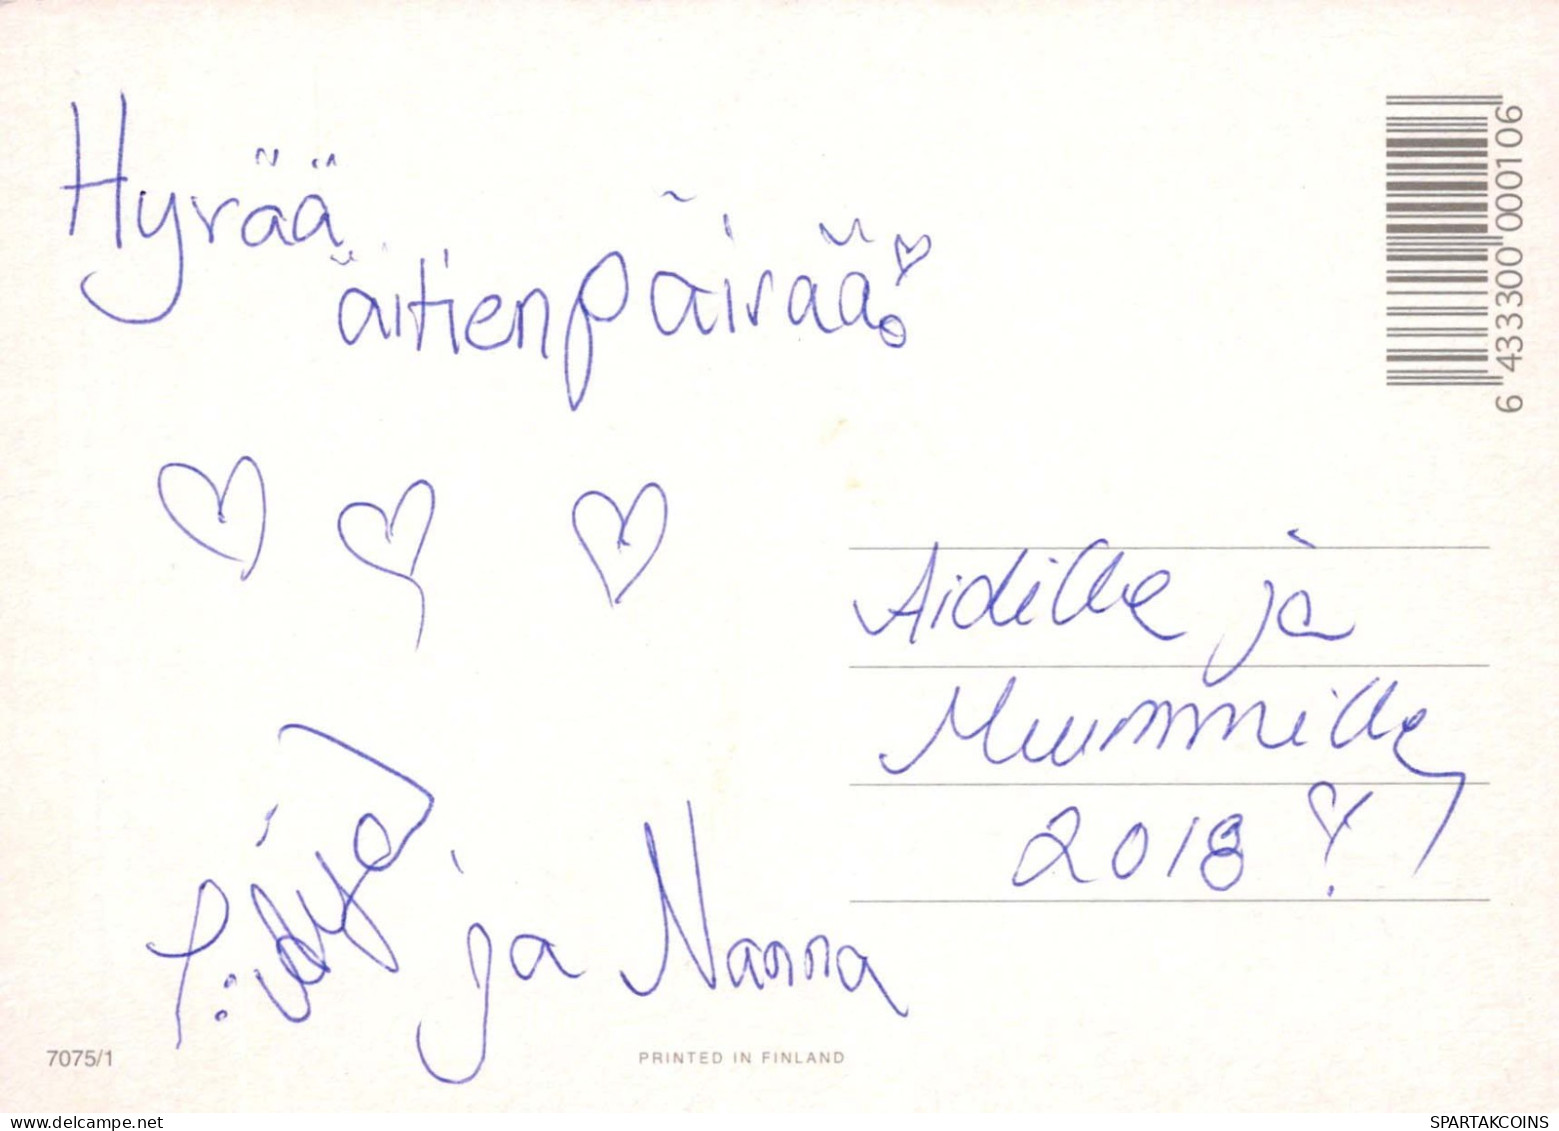 Hyvää
äitienpäivää!
♡ ♡ ♡
Äidille ja
Mummille
2018 !
T:
ja Nanna
7075/1
PRINTED IN FINLAND
6 433300 000106
www.delcampe.net
SPARTAKCOINS